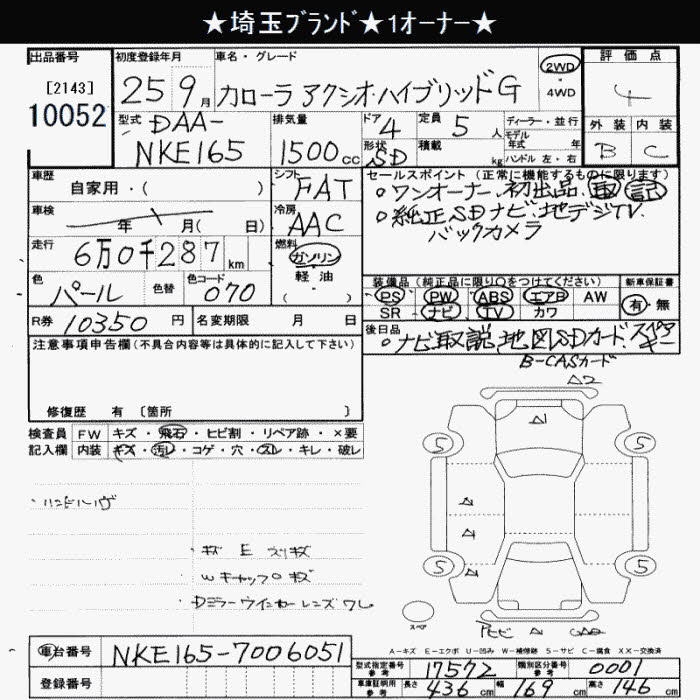 ★埼玉ﾌﾞﾗﾝﾄﾞ★1オーナー★
出品番号
[2143]
10052
初度登録年月
25 9月
車名・グレード
カローラ アクシオ ハイブリッド G
2WD
・
4WD
評価点
4
型式
DAA-
NKE165
排気量
1500cc
ドア 4
形状 SD
定員 5人
積載 kg
ディーラー・並行
モデル
年式 年式
ハンドル 左・右
外装 内装
B C
車歴
自家用・( )
シフト FAT
車検
年 月( 日)
冷房 AAC
走行
6万0千287km
燃料
ガソリン
軽油
( )
色
パール
色替
色コード
070
R券 10350円
名変期限 月 日
セールスポイント (正常に機能するものに限ります)
○ワンオーナー 初出品 取 記
○純正SDナビ 地デジTV
バックカメラ
装備品(純正品に限り○をつけてください)
新車保証書
PS PW ABS エアB AW
SR ナビ TV カワ
有・無
後日品
○ナビ取説 地図SDカード スペアキー
B-CASカード
注意事項申告欄(不具合内容等は具体的に記入して下さい)
修復歴 有 〔箇所 〕
検査員 FW キズ・飛石・ヒビ割・リペア跡・×要
記入欄 内装 キズ・汚レ・コゲ・穴・スレ・キレ・破レ
A2
A
5 5
A
A
A
5 5
スペア
A
・キズ E スリキズ
・Wキャップ○キズ
・Dミラーウインカーレンズワレ
A-キズ E-エクボ U-凹み W-補修跡 S-サビ C-腐食 XX-交換済
車台番号 NKE165-7006051
登録番号
型式指定番号
参考
17572
類別区分番号
参考
0001
車庫証明用
参考
長さ 436cm 幅 169cm 高さ 146cm